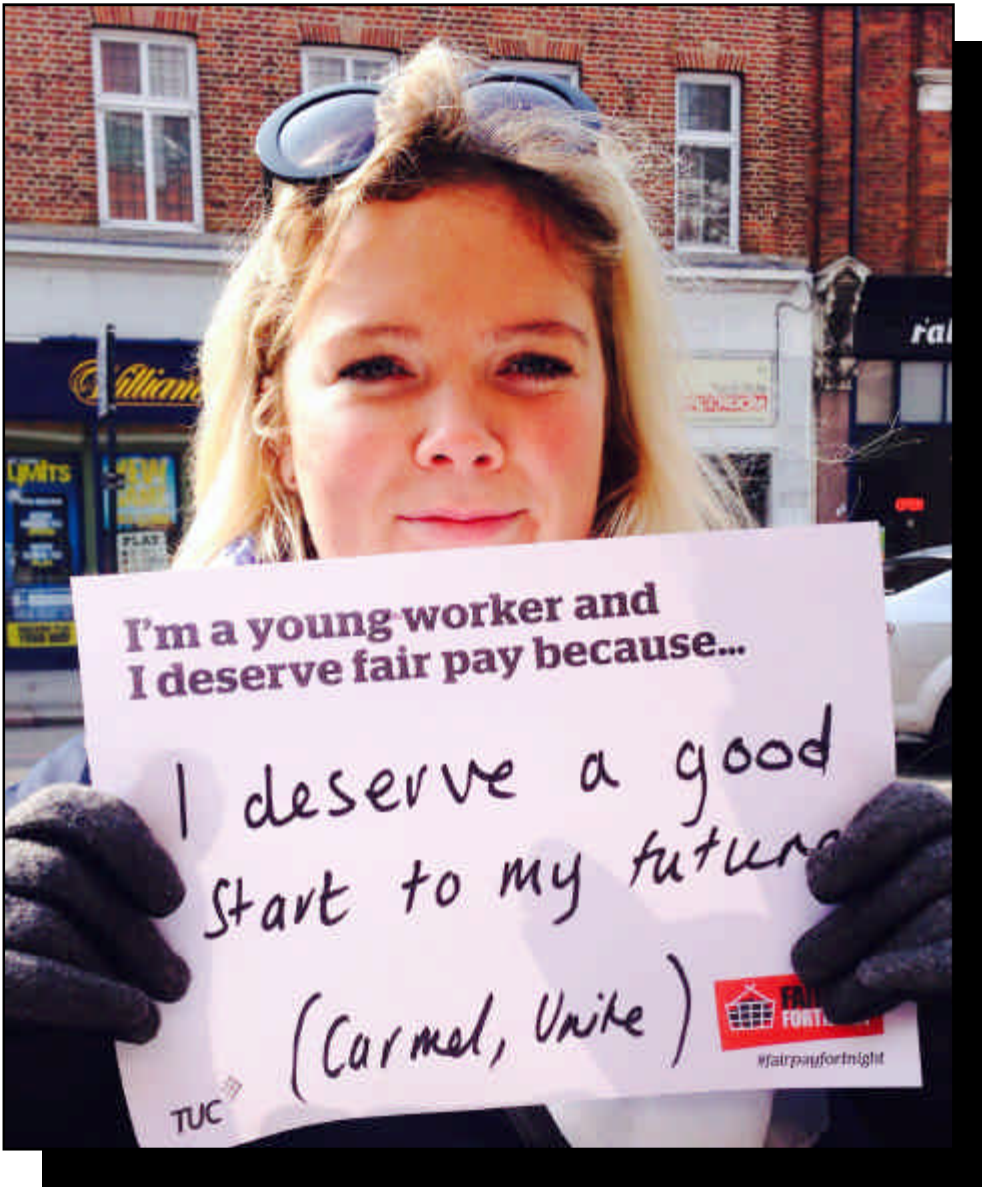 William
ral
LIMITS
PLAY
OPEN
I'm a young worker and
I deserve fair pay because...
I deserve a good
start to my future
(Carmel, Unite)
FORT
#fairpayfortnight
TUC